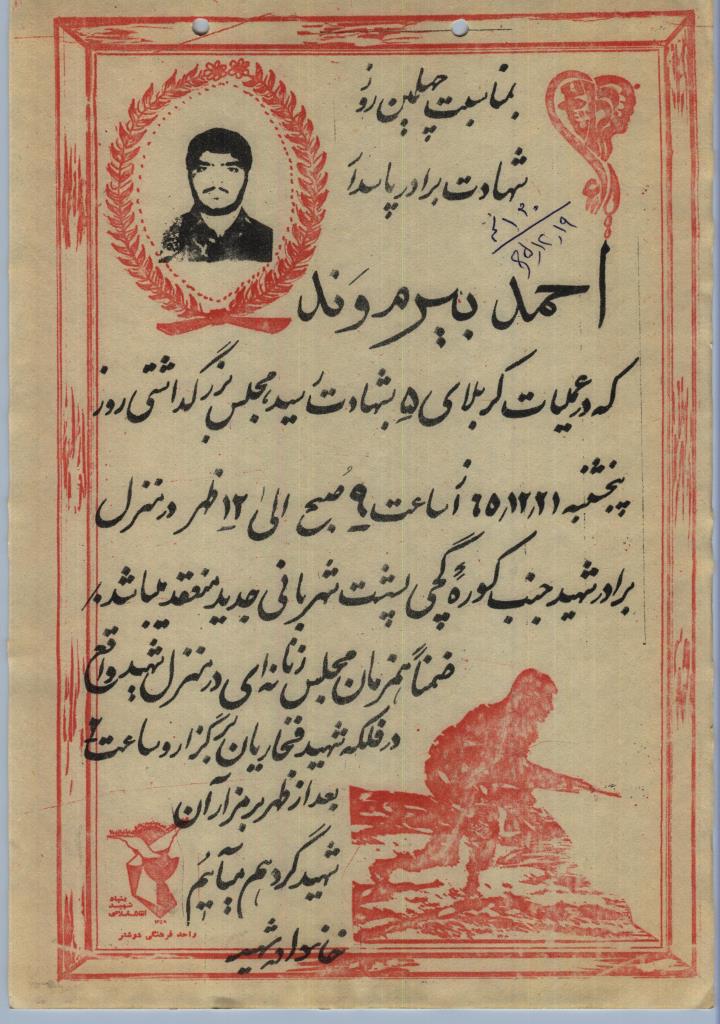 بمناسبت چهلمین روز
شهادت برادر پاسدار
احمد بیرموند
که در عملیات کربلای ۵ بشهادت رسید، مجلس بزرگداشتی روز
پنجشنبه ۶۵,۱۲,۲۱ از ساعت ۹ صبح الی ۱۲ ظهر در منزل
برادر شهید جنب کورهٔ گچی پشت شهربانی جدید منعقد میباشد
ضمناً همزمان مجلس زنانه‌ای در منزل شهید واقع
در فلکه شهید فتحاریان برگزار و ساعت ۲
بعد از ظهر بر مزار آن
شهید گرد هم میآئیم
خانواده شهید
بنیاد
شهید
انقلاب اسلامی
واحد فرهنگی شوشتر